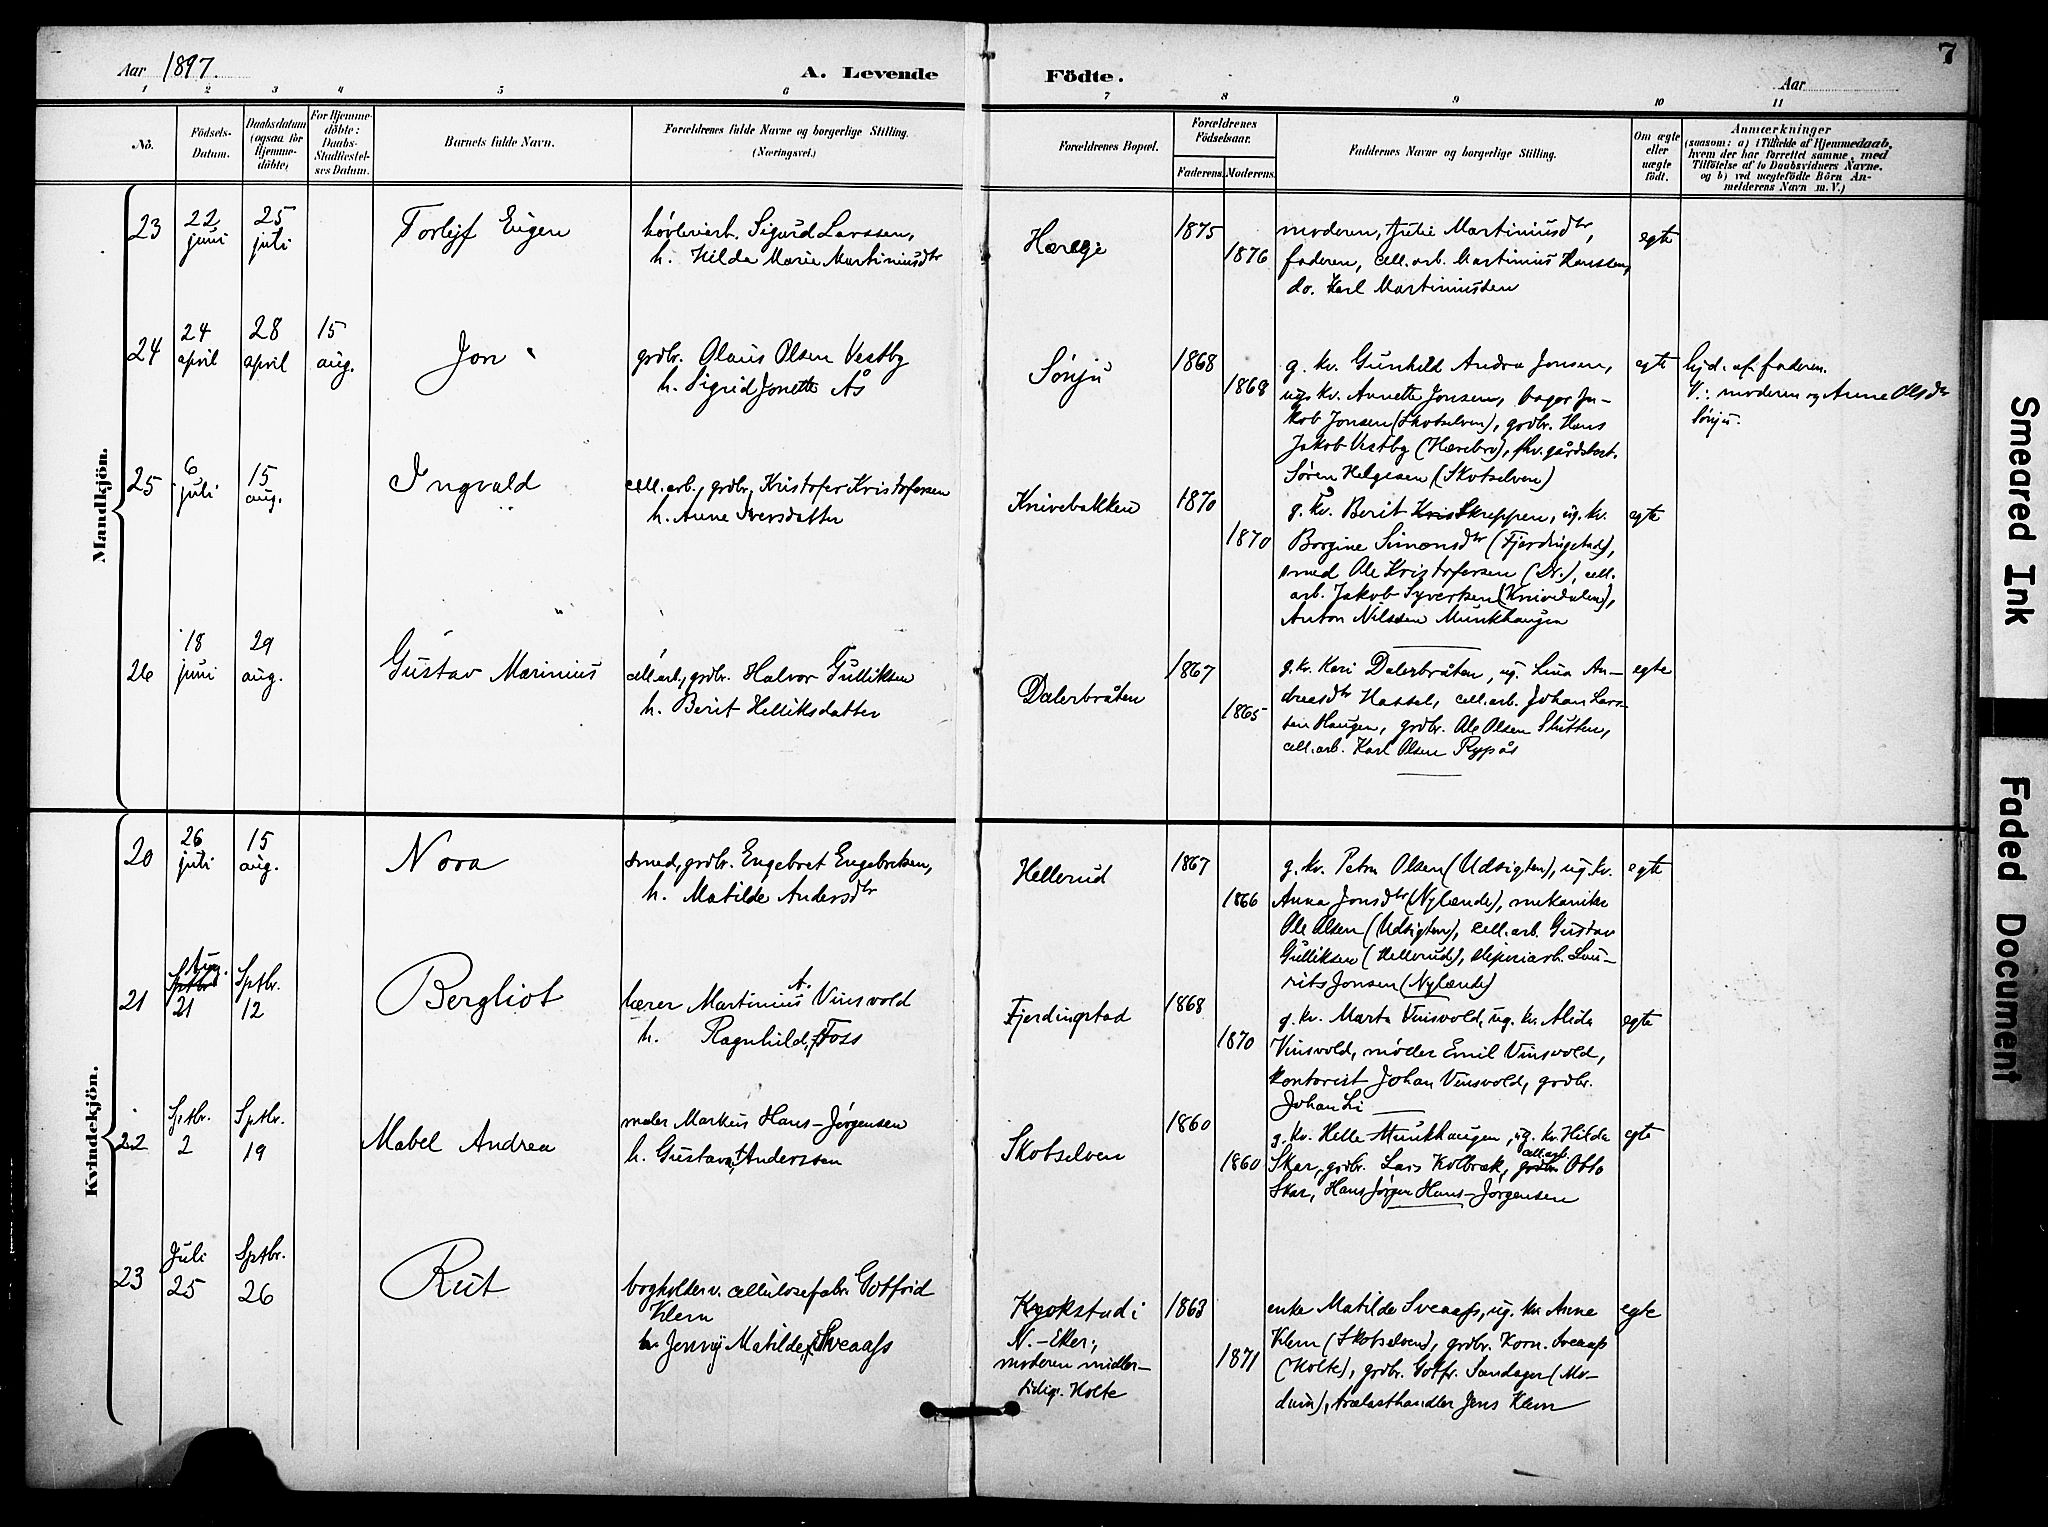 7
Aar 1897.
A. Levende Födte.
Aar
1 2 3 4 5 6 7 8 9 10 11
No.
Födsels-
Datum.
Daabsdatum
(ogsaa for
Hjemme-
döbte)
For Hjemme-
döbte:
Daabs-
Stadfæstel-
ses Datum.
Barnets fulde Navn.
Forældrenes fulde Navne og borgerlige Stilling.
(Næringsvei.)
Forældrenes Bopæl.
Forældrenes
Födselsaar.
Faderens. Moderens.
Faddernes Navne og borgerlige Stilling.
Om ægte
eller
uægte
födt.
Anmærkninger
(saasom: a) i Tilfælde af Hjemmedaab,
hvem der har forrettet samme, med
Tilföielse af to Daabsvidners Navne,
og b) ved uægtefödte Börn An-
melderens Navn m. V.)
Mandkjön.
23
22
juni
25
juli
Torleif Eugen
høvleriarb. Sigurd Larssen,
h. Hilda Marie Martiniusdtr
Hærege
1875
1876
moderen, Julie Martiniusdtr,
faderen, cell. arb. Martinius Hanssen,
do. Karl Martiniussen
egte
24
24
april
28
april
15
aug.
Jon
grdbr. Olaus Olsen Vestby
h. Sigrid Jonette Ås
Sønju
1868
1868
g. kv. Gunhild Andra Jonsen,
ug. kv. Annette Jonsen, bager Ja-
kob Jonsen (Skotselven), grdbr. Hans
Jakob Vestby (Hærebro), fhv. gårdbest.
Søren Helgesen (Skotselven)
egte
hjd. af faderen.
V.: moderen og Anne Olsdtr
Sønju.
25
6
juli
15
aug.
Ingvald
cell. arb., grdbr. Kristofer Kristofersen
h. Anne Iversdatter
Knivebakken
1870
1870
g. kv. Berit Skreppen, ug. kv.
Borgine Simensdtr (Fjerdingstad),
smed Ole Kristofersen (Dr.), cell.
arb. Jakob Syversen (Knivedalen),
Anton Nilssen Munkhaugen
egte
26
18
juni
29
aug.
Gustav Marinius
cell. arb., grdbr. Halvor Gulliksen
h. Berit Helliksdatter
Dalerbråten
1867
1865
g. kv. Kari Dalerbråten, ug. Lina An-
dreasdtr Hassel, cell. arb. Johan Lars-
sen Haugen, grdbr. Ole Olsen Slutten,
cell. arb. Karl Olsen Rypås
egte
Kvindekjön.
20
26
juli
15
aug.
Nora
smed, grdbr. Engebret Engebretsen,
h. Matilde Andersdtr
Hellerud
1867
1866
g. kv. Petra Olsen (Udsigten), ug. kv.
Anna Jonsdtr (Nylænde), mekaniker
Ole Olsen (Udsigten), cell. arb. Gustav
Gulliksen (Hellerud), sliperiarb. Lau-
rits Jonsen (Nylænde)
egte
21
Aug.
Sptbr
21
Sptbr.
12
Bergliot
lærer Martinius A. Vinsvold
h. Ragnhild, f. Foss
Fjerdingstad
1868
1870
g. kv. Marta Vinsvold, ug. kv. Alida
Vinsvold, møller Emil Vinsvold,
kontorist Johan Vinsvold, grdbr.
Johan Li
egte
22
Sptbr.
2
Sptbr.
19
Mabel Andrea
maler Markus Hans-Jørgensen
h. Gustava, f. Anderssen
Skotselven
1860
1860
g. kv. Helle Munkhaugen, ug. kv. Hilda
Skar, grdbr. Lars Kolbræk, cell. arb. Otto
Skar, Hans Jørgen Hans-Jørgensen
egte
23
Juli
25
Sptbr.
26
Rut
bogholder v. cellulosefabr. Gotfrid
Klem
h. Jenny Matilde, f. Sveaass
Krokstad i
N.-Eker;
moderen midler-
tidig. Holte
1863
1871
enke Matilde Sveaass, ug. kv. Anne
Klem (Skotselven), grdbr. Korn. Sveaass
(Holte), grdbr. Gotfr. Sandager (Mo-
dum), trælasthandler Jens Klem
egte
Smeared Ink
Faded Document